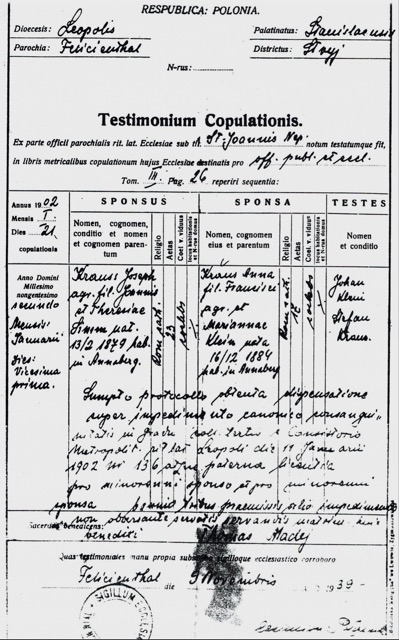 RESPUBLICA: POLONIA.
Dioecesis: Leopolis Palatinatus: Stanislaensis
Parochia: Felicienthal Districtus: Stryj
N-rus:
Testimonium Copulationis.
Ex parte officii parochialis rit. lat. Ecclesiae sub tit. St. Joannis Nep. notum testatumque fit,
in libris metricalibus copulationum hujus Ecclesiae destinatis pro off. publ. et
Tom. III. Pag. 26 reperiri sequentia:
Annus 1902
Mensis I.
Dies 21.
copulationis
SPONSUS
Nomen, cognomen, conditio et nomen et cognomen parentum
Religio
Aetas
Coel. v. viduus
Locus habitationis et N-rus domus
SPONSA
Nomen, cognomen eius et parentum
Religio
Aetas
Coel. v. viduus
Locus habitationis et N-rus domus
TESTES
Nomen et conditio
Anno Domini
Millesimo
nongentesimo
secundo
Mensis
Januarii
Dies
Vicesima
prima.
Krauss Joseph
agr. fil. Joannis
et Theresiae
Simm nat.
13/2 1879 hab.
in Annaberg.
Rom. cath.
23
caelebs
Kraus Anna
fil. Francisci
agr. et
Mariannae
Klein nata
16/12 1884
hab. in Annaberg
Rom. cath.
17
caelebs
Johan
Stefan
Kraus.
Sumpto protocollo obtenta dispensatione
super impedimento canonico consangui-
nitatis in gradu tertio a Consistorio
Metropolit. rit. lat. Leopoli die 11 Januarii
1902 N 136 atque paterna licentia
pro minorenni sponso et pro minorenni
sponsa bannis tribus praemissis alio impedimento
non obstante servatis servandis matrim. hi
benedixi
Sacerdos benedicens: Thomas Madej
Quas testimoniales manu propria subscribo sigilloque ecclesiastico corroboro
Felicienthal die 9 Novembris 1939
SIGILLUM ECCLESIAE